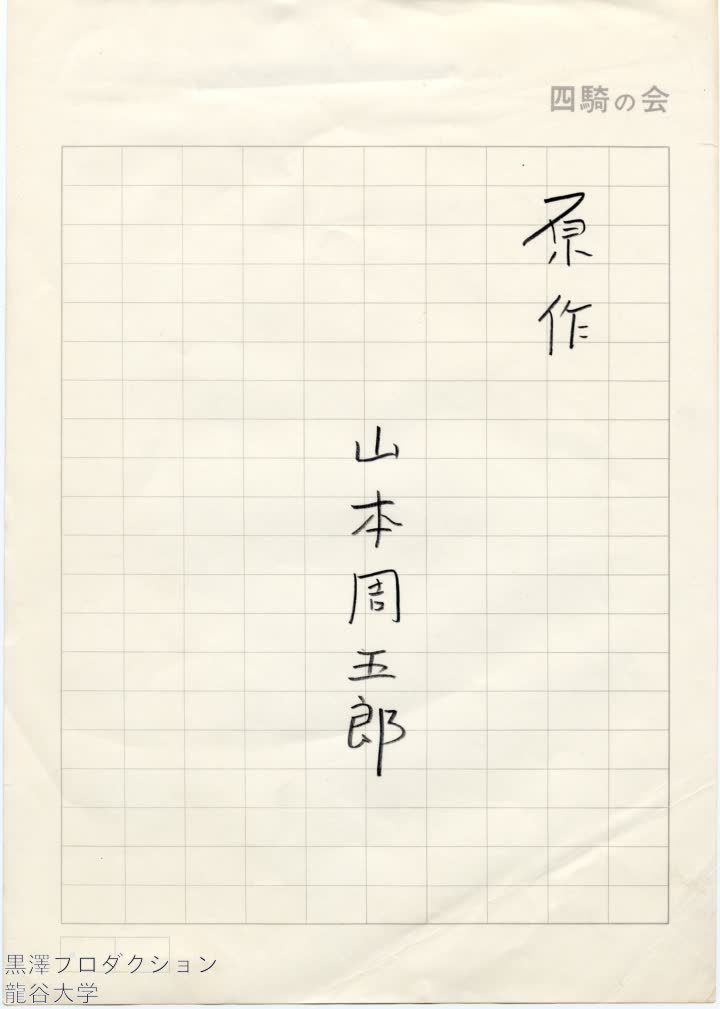 四騎の会
原作
山本周五郎
黒澤プロダクション
龍谷大学